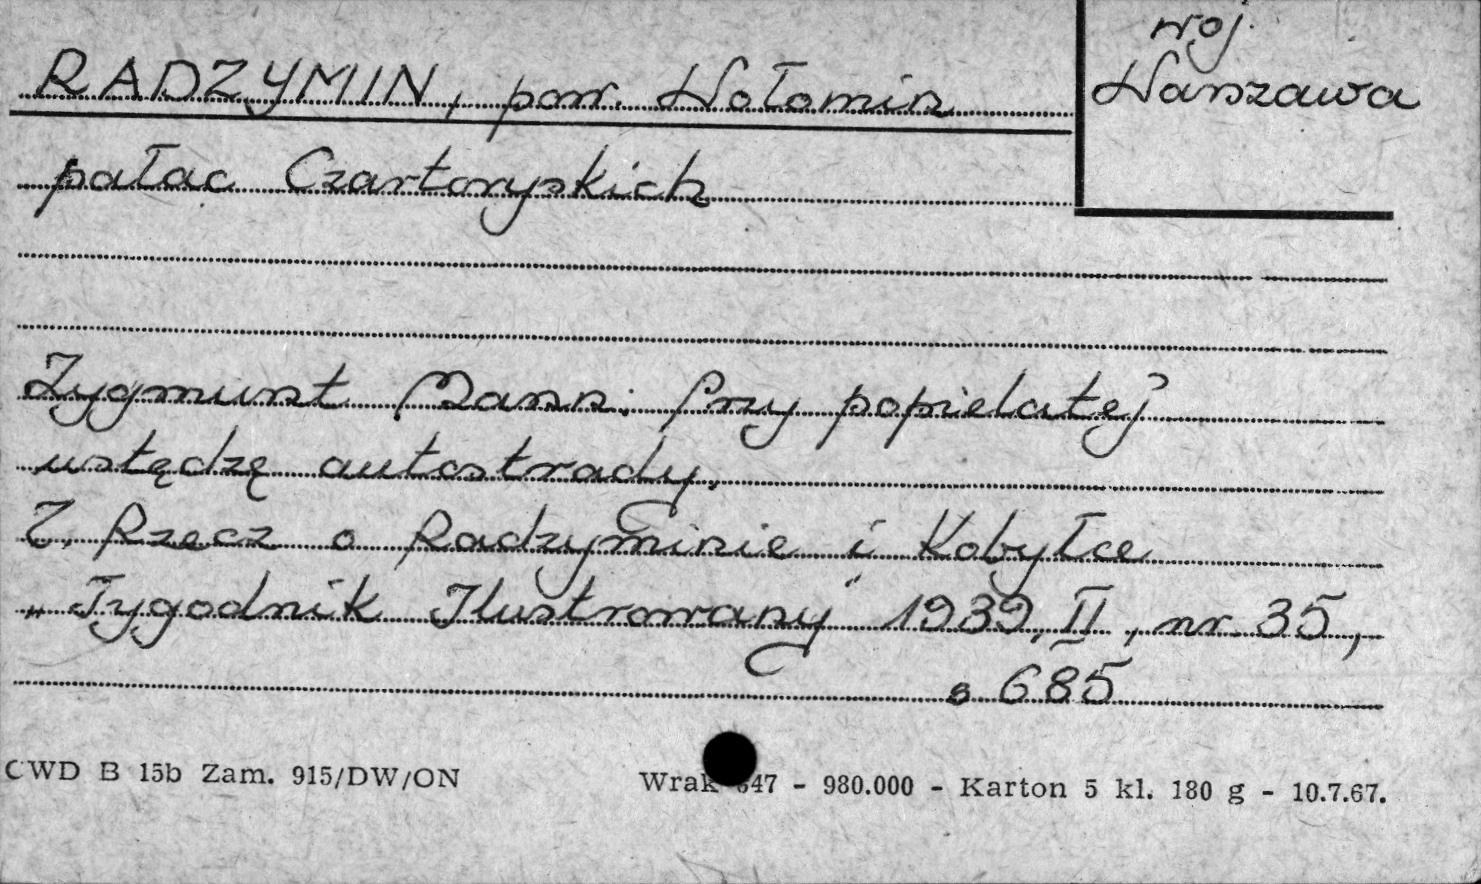 woj.
Warszawa
RADZYMIN, pow. Wołomin
pałac Czartoryskich
Zygmunt Mann: Przy popielatej
wstędzę autostrady.
Z. Rzecz o Radzyminie i Kobyłce
„Tygodnik Ilustrowany" 1939, II, nr 35,
s 685
CWD B 15b Zam. 915/DW/ON
Wrak 47 - 980.000 - Karton 5 kl. 180 g - 10.7.67.